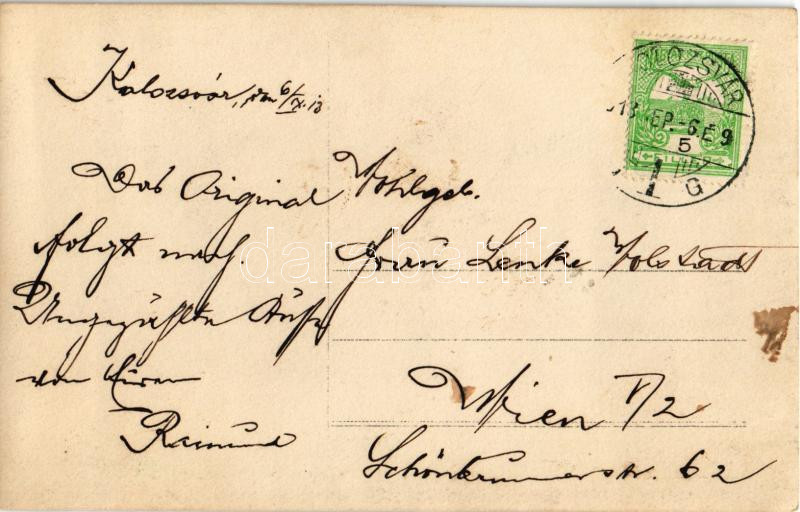 Kolozsvár, am 6/IX.13
Das Original
folgt nach.
Ungezählte Küsse
von Eurem
Raimund
Wohlgeb.
Frau Lenke Wolstadt
Wien V/2
Schönbrunnerstr. 62
KOLOZSVÁR
913 SEP. -6. E 9
5
1 G
darabanth